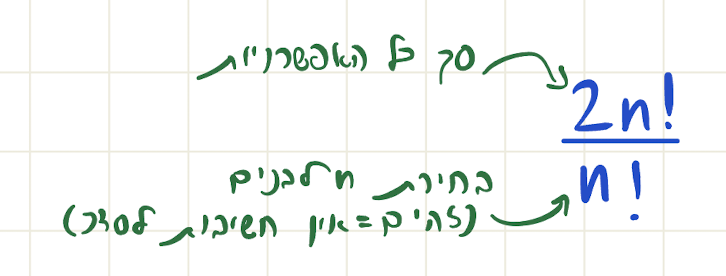 סך כל האפשרויות
2n!
n!
בחירת n לבנים
(זהים=אין חשיבות לסדר)